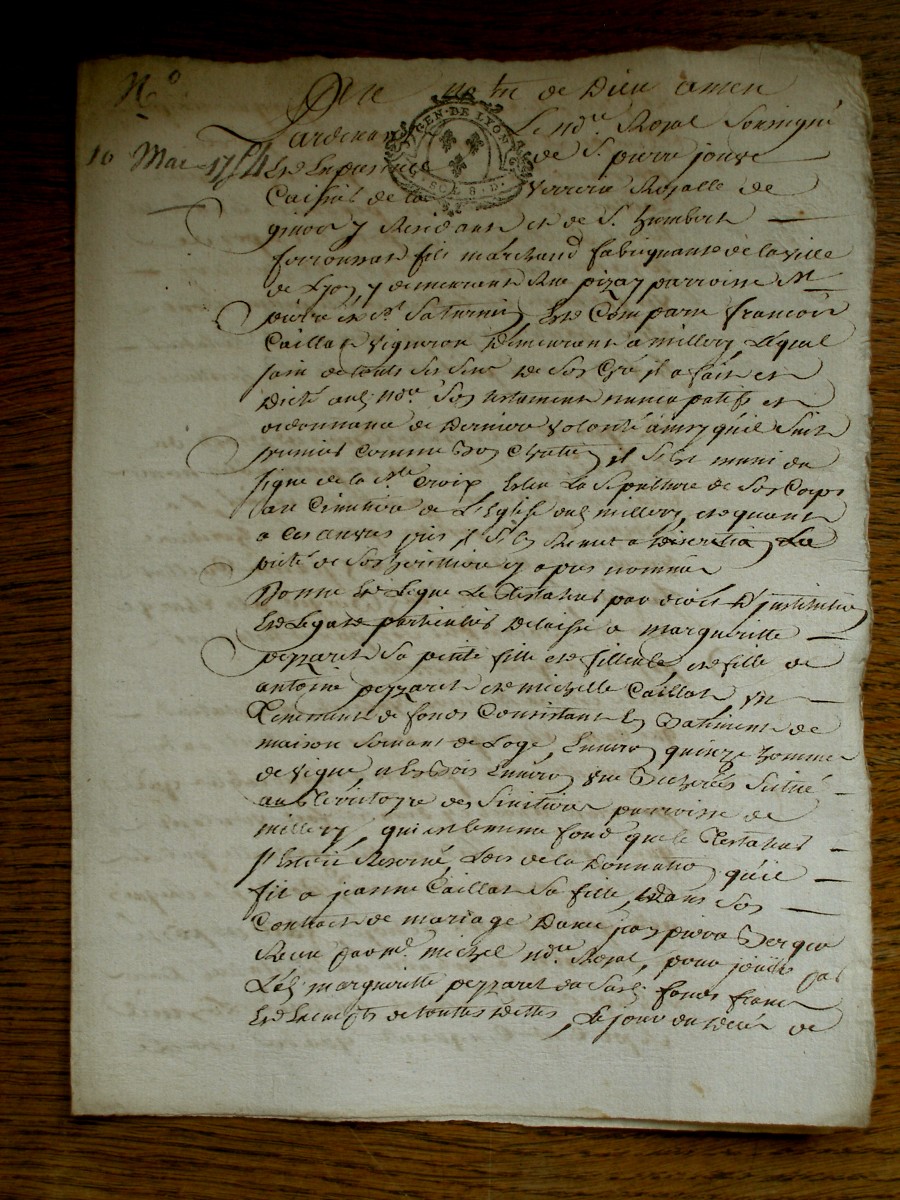 N.o
Au nom de Dieu amen
Pardevant Le no.re Royal soussigné
GEN. DE LYON
SOLS. D.
10 Mae 1754
Et En presence de S.r pierre jouve
Caissié de la Verrerie Royalle de
givor y Residant et de S.r humbert
fils marchand fabriquant de la ville
de Lyon y demeurant Rue pizay parroisse St
pierre et St Saturnin, Est Comparu françois
Caillat vigneron demeurant a millery, Lequel
sain de touts ses sens de son Gré il a fait et
Dicté aud. no.re son testament nuncupatif et
ordonnance de Derniere volonté ainsy quil suit
premier comme bon Chretien il s'est muni du
signe de la S.te Croix, Eslu La Sepulture de son Corps
au Cimetiere de L'Eglise dud. millery, et quant
a ses il s'En Remet a discretion La
pieté de son heritiere cy apres nommée
Donne Et Legue Le Testateur par droit D'institution
Et Legat particulier Delaisse a margueritte
peyzaret sa petite fille et filleule, et fille de
antoine peyzaret et michelle Caillat, un
Tenement de fonds Consistant En Batiment de
maison servant de Loge, Environ quinze hommes
de vigne, et En bois Environ une Bicherée Situé
au Territoire des parroisse de
millery, qui est le meme fond que le Testateur
s'Etoit Reservé Lors de la Donnation qu'il
fit a jeanne Caillat sa fille, Dans son
Contract de mariage D'avec jean pierre
Recu par M.e michel no.re Royal, pour jouir par
Lad. margueritte peyzaret du Susd. fonds franc
Et Exempt de toutes dettes, Le jour du décès de